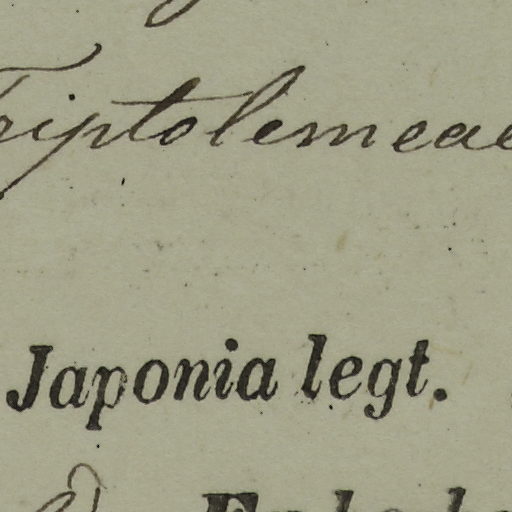 Triptolemeae
Japonia legt.